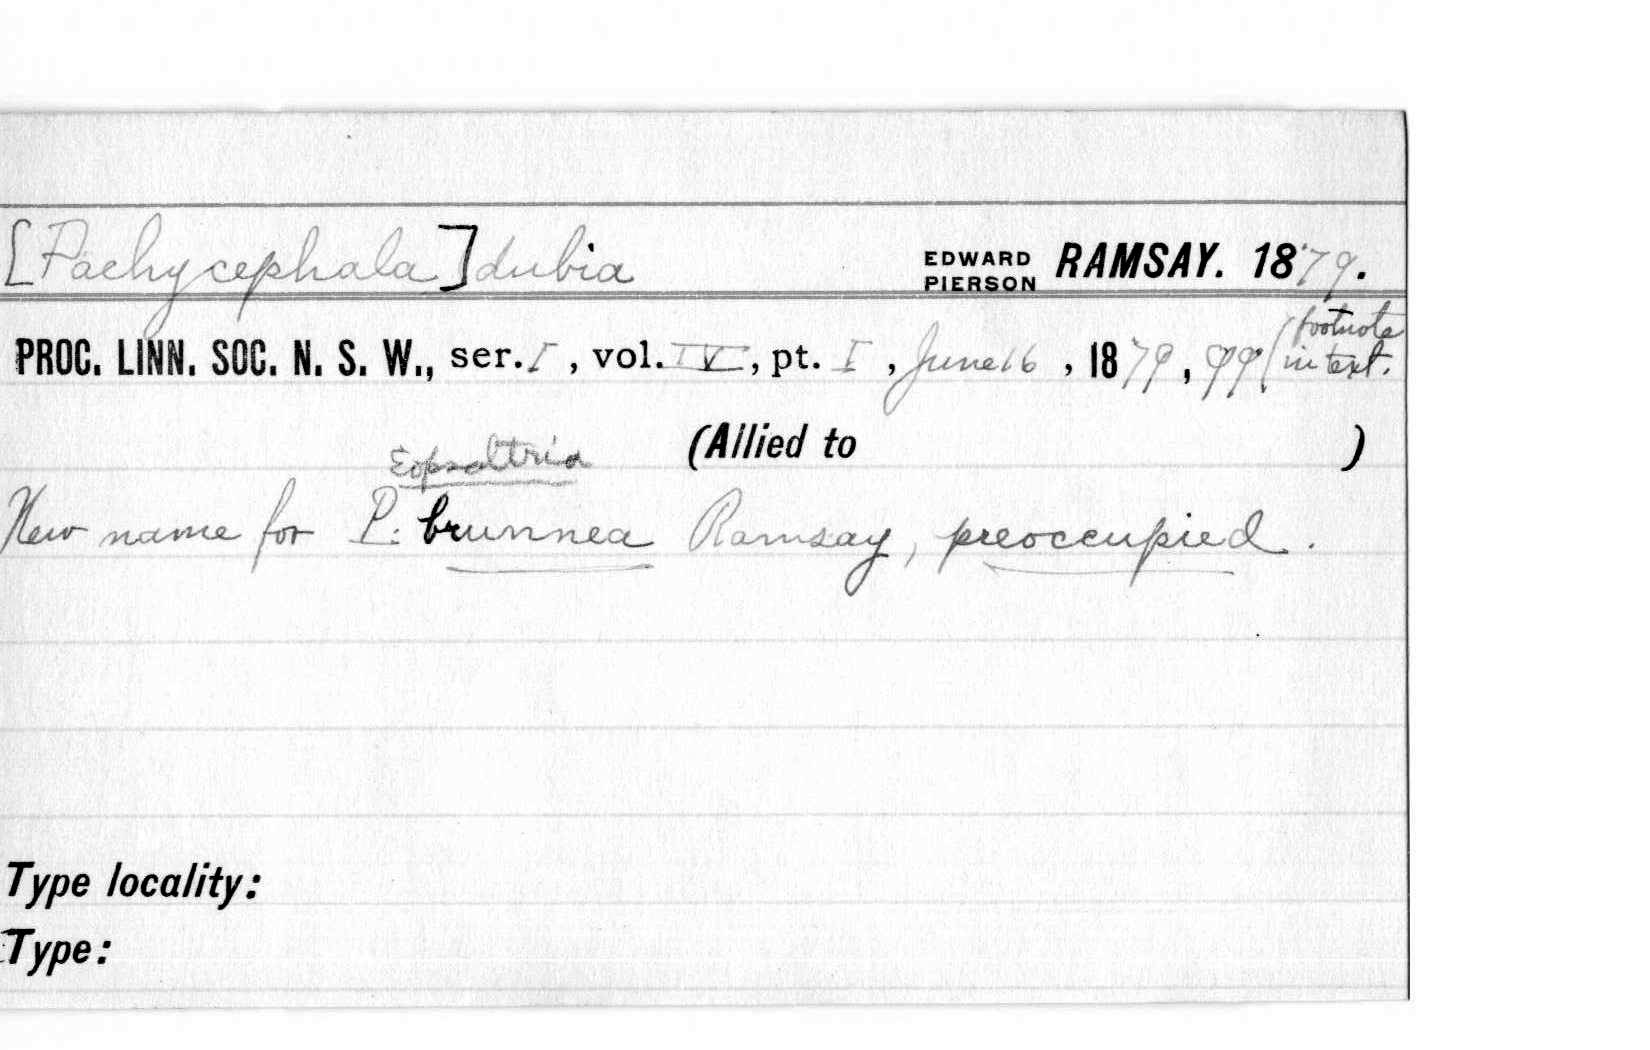 [Pachycephala] dubia EDWARD PIERSON RAMSAY. 1879.
PROC. LINN. SOC. N. S. W., ser. I, vol. IV, pt. I, June 16, 1879, 99 (footnote in text.
(Allied to )
Eopsaltria
New name for P. brunnea Ramsay, preoccupied.
Type locality:
Type: